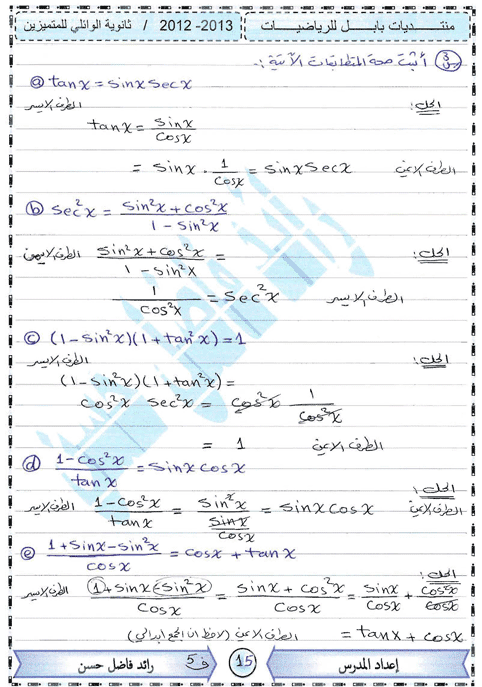 منتديات بابل للرياضيات 2012 -2013 / ثانوية الوائلي للمتميزين
س3/ أثبت صحة المتطابقات الآتية :-
ⓐ tanx = sinx secx
الحل :
الطرف الايسر
tanx = sinx/cosx
= sinx . 1/cosx = sinx secx الطرف الايمن
ⓑ sec²x = (sin²x + cos²x)/(1 - sin²x)
الحل :
الطرف الايمن (sin²x + cos²x)/(1 - sin²x) =
1/cos²x = sec²x الطرف الايسر
ⓒ (1 - sin²x)(1 + tan²x) = 1
الحل :
الطرف الايسر
(1 - sin²x)(1 + tan²x) =
cos²x sec²x = cos²x 1/cos²x
= 1 الطرف الايمن
ⓓ (1 - cos²x)/tanx = sinx cosx
الحل :
الطرف الايسر (1 - cos²x)/tanx = sin²x/(sinx/cosx) = sinx cosx الطرف الايمن
ⓔ (1 + sinx - sin²x)/cosx = cosx + tanx
الحل :
الطرف الايسر (1 + sinx - sin²x)/cosx = (sinx + cos²x)/cosx = sinx/cosx + cos²x/cosx
= tanx + cosx الطرف الايمن (لاحظ ان الجمع ابدالي)
إعداد المدرس 15 ف5 رائد فاضل حسن